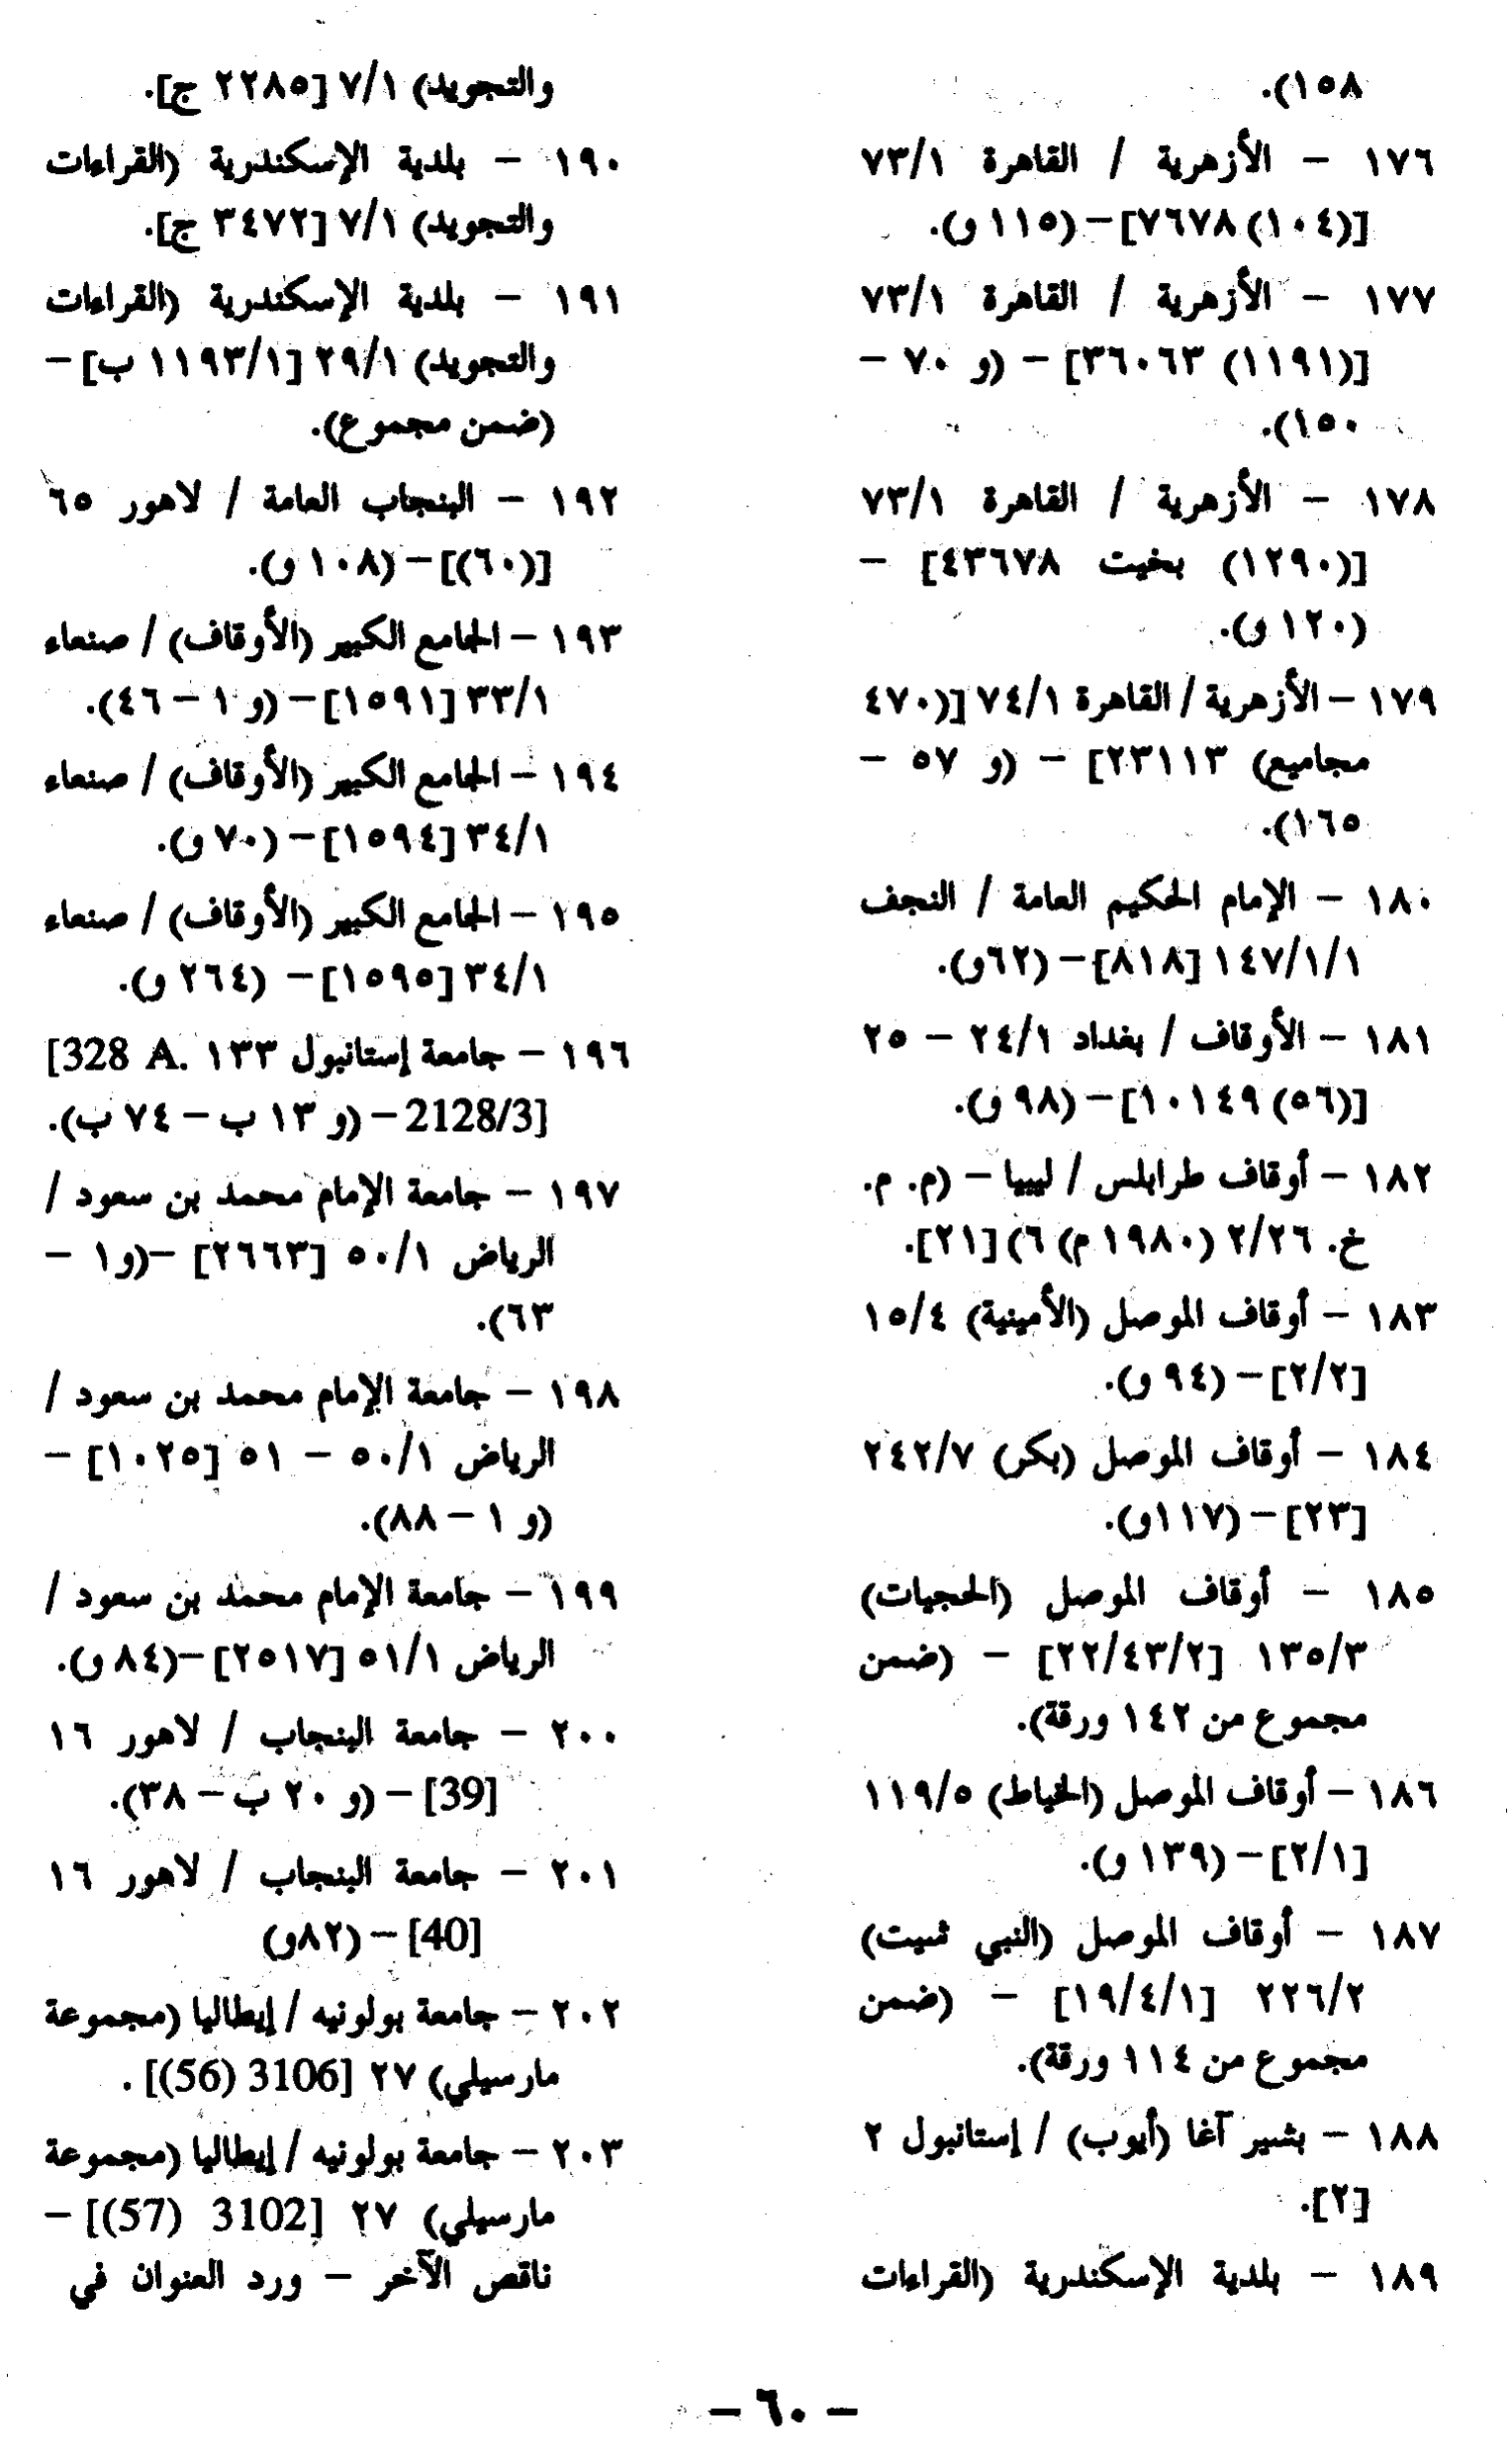 ١٥٨).
١٧٦ - الأزهرية / القاهرة ٧٣/١
[(١٠٤) ٧٦٧٨] - (١١٥ و).
١٧٧ - الأزهرية / القاهرة ٧٣/١
[(١١٩١) ٣٦٠٦٣] - (و ٧٠ -
١٥٠).
١٧٨ - الأزهرية / القاهرة ٧٣/١
[(١٢٩٠) بخيت ٤٣٦٧٨] -
(١٢٠ و).
١٧٩ - الأزهرية / القاهرة ٧٤/١ [(٤٧٠
مجاميع) ٢٣١١٣] - (و ٥٧ -
١٦٥).
١٨٠ - الإمام الحكيم العامة / النجف
١٤٧/١/١ [٨١٨] - (٦٢و).
١٨١ - الأوقاف / بغداد ٢٤/١ - ٢٥
[(٥٦) ١٠١٤٩] - (٩٨ و).
١٨٢ - أوقاف طرابلس / ليبيا - (م. م.
خ. ٢/٢٦ (١٩٨٠ م) ٦) [٢١].
١٨٣ - أوقاف الموصل (الأمينية) ١٥/٤
[٢/٢] - (٩٤ و).
١٨٤ - أوقاف الموصل (بكر) ٢٤٢/٧
[٢٣] - (١١٧و).
١٨٥ - أوقاف الموصل (الحجيات)
١٣٥/٣ [٢٢/٤٣/٢] - (ضمن
مجموع من ١٤٢ ورقة).
١٨٦ - أوقاف الموصل (الخياط) ١١٩/٥
[٢/١] - (١٣٩ و).
١٨٧ - أوقاف الموصل (النبي ثميت)
٢٢٦/٢ [١٩/٤/١] - (ضمن
مجموع من ١١٤ ورقة).
١٨٨ - بشير آغا (أيوب) / إستانبول ٢
[٢].
١٨٩ - بلدية الإسكندرية (القراءات
والتجويد) ٧/١ [٢٢٨٥ ج].
١٩٠ - بلدية الإسكندرية (القراءات
والتجويد) ٧/١ [٣٤٧٢ ج].
١٩١ - بلدية الإسكندرية (القراءات
والتجويد) ٢٩/١ [١١٩٣/١ ب] -
(ضمن مجموع).
١٩٢ - البنجاب العامة / لاهور ٦٥
[(٦٠)] - (١٠٨ و).
١٩٣ - الجامع الكبير (الأوقاف) / صنعاء
٣٣/١ [١٥٩١] - (و ١ - ٤٦).
١٩٤ - الجامع الكبير (الأوقاف) / صنعاء
٣٤/١ [١٥٩٤] - (٧٠ و).
١٩٥ - الجامع الكبير (الأوقاف) / صنعاء
٣٤/١ [١٥٩٥] - (٢٦٤ و).
١٩٦ - جامعة إستانبول ١٣٣ [328 A.
2128/3] - (و ١٣ ب - ٧٤ ب).
١٩٧ - جامعة الإمام محمد بن سعود /
الرياض ٥٠/١ [٢٦٦٣] - (و١ -
٦٣).
١٩٨ - جامعة الإمام محمد بن سعود /
الرياض ٥٠/١ - ٥١ [١٠٢٥] -
(و ١ - ٨٨).
١٩٩ - جامعة الإمام محمد بن سعود /
الرياض ٥١/١ [٢٥١٧] - (٨٤ و).
٢٠٠ - جامعة البنجاب / لاهور ١٦
[39] - (و ٢٠ ب - ٣٨).
٢٠١ - جامعة البنجاب / لاهور ١٦
[40] - (٨٢و)
٢٠٢ - جامعة بولونيه / إيطاليا (مجموعة
مارسيلي) ٢٧ [3106 (56)] .
٢٠٣ - جامعة بولونيه / إيطاليا (مجموعة
مارسيلي) ٢٧ [3102 (57)] -
ناقص الآخر - ورد العنوان في
- ٦٠ -